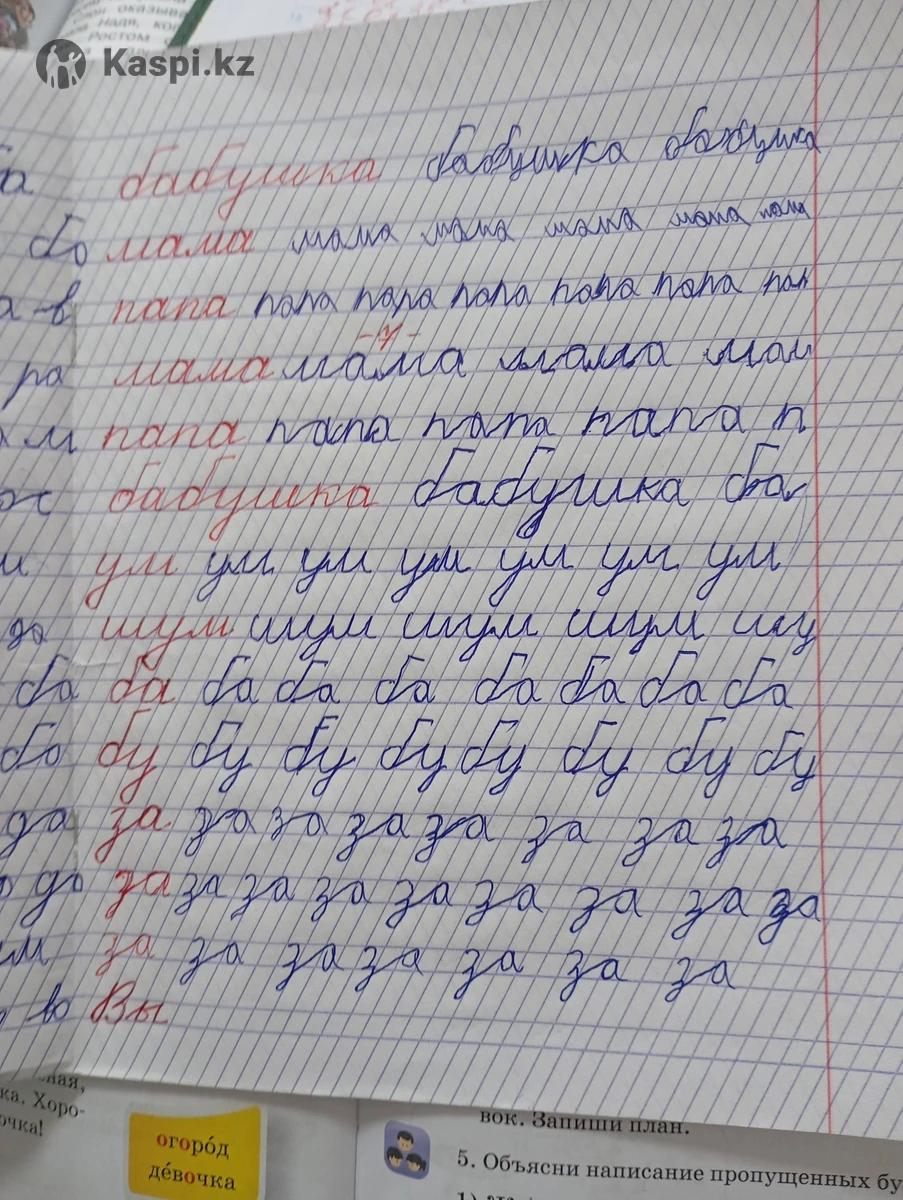 слон оказыв
надя, ко
ростом
Kaspi.kz
ба бабушка бабушка бабушка
бо мама мама мама мама мама мама
а в папа папа папа папа папа папа пап
-4-
ра мама мама мама мам
м папа папа папа папа п
ж бабушка бабушка ба
и ум ум ум ум ум ум ум
до шум шум шум шум шу
ба ба ба ба ба ба ба ба ба
бо бу бу бу бу бу бу бу бу
да за за за за за за за за
до за за за за за за за за за
им за за за за за за за
во Вы
ная,
ка. Хоро-
очка!
огоро́д
де́вочка
вок. Запиши план.
5. Объясни написание пропущенных бу